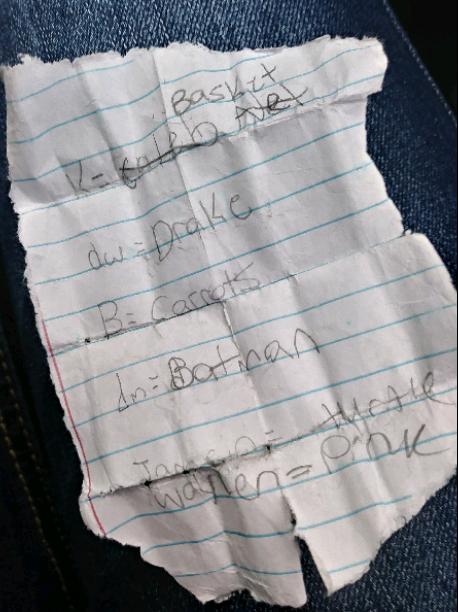 Baskit
K- 
dw = Drake
B = Carrots
dn = Batman
turtle
Warren = Pink